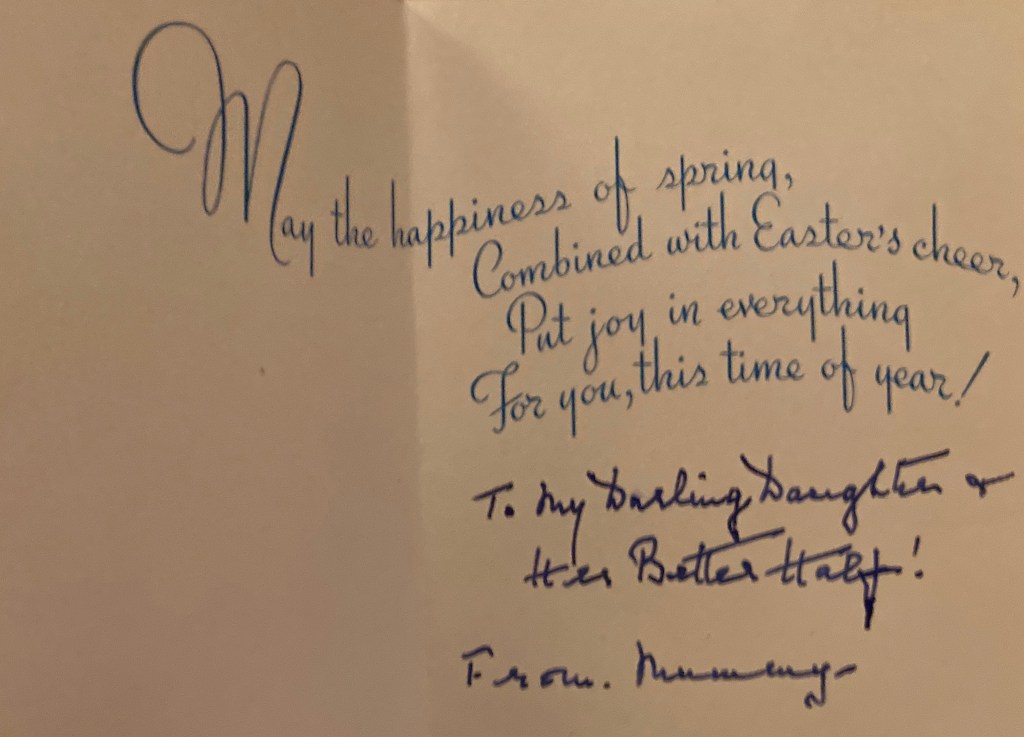 May the happiness of spring,
Combined with Easter's cheer,
Put joy in everything
For you, this time of year!
To My Darling Daughter &
Her Better Half!
From. Mummy-